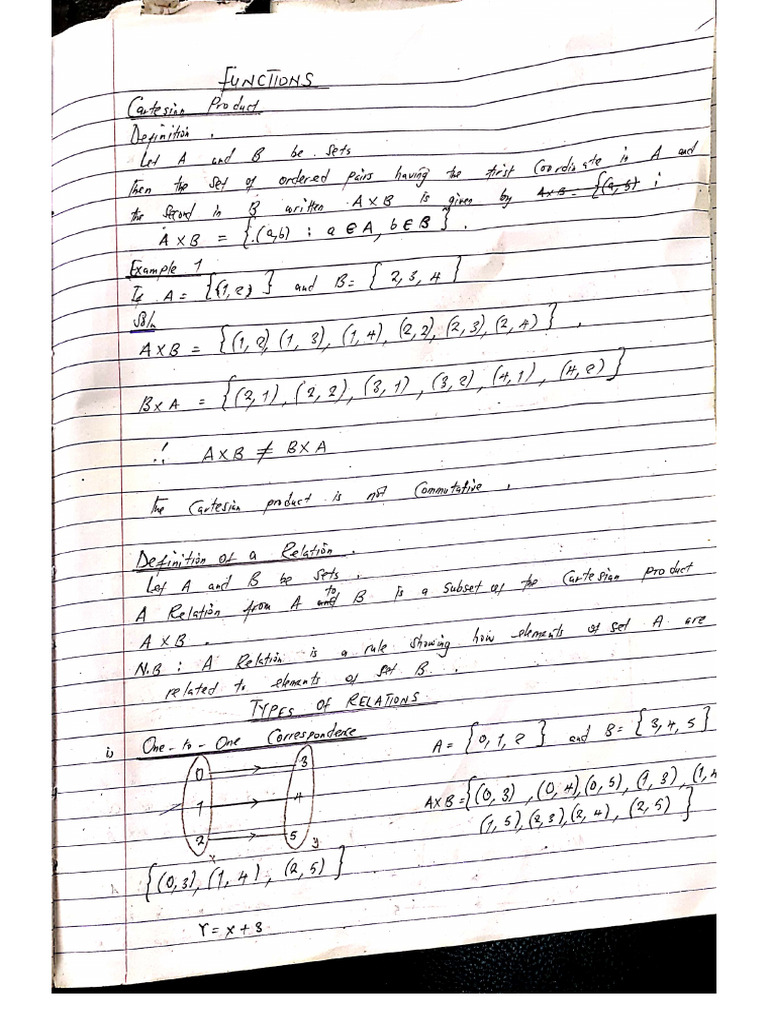 FUNCTIONS
Cartesian Product
Definition.
Let A and B be sets
Then the set of ordered pairs having the first coordinate in A and
the second in B written A×B is given by A×B = {(a, b) :
A×B = {(a,b) : a ∈ A, b ∈ B}.
Example 1
If A = {(1,2)} and B = {2, 3, 4}
Soln
A×B = {(1,2) (1, 3), (1,4), (2,2), (2,3), (2,4)},
B×A = {(2,1), (2,2), (3,1), (3,2), (4,1), (4,2)}
∴ A×B ≠ B×A
The Cartesian product is not Commutative.
Definition of a Relation.
Let A and B be sets.
A Relation from A and to B is a subset of the Cartesian product
A×B.
N.B : A Relation is a rule showing how elements of set A are
related to elements of set B.
TYPES OF RELATIONS
i) One-to-One Correspondence
A = {0, 1, 2} and B = {3, 4, 5}
0 3
1 4
2 5
x y
A×B = {(0,3), (0,4) (0,5), (1,3), (1,4
(1,5), (2,3), (2,4), (2,5)}
{(0,3), (1,4), (2,5)}
Y = x + 3